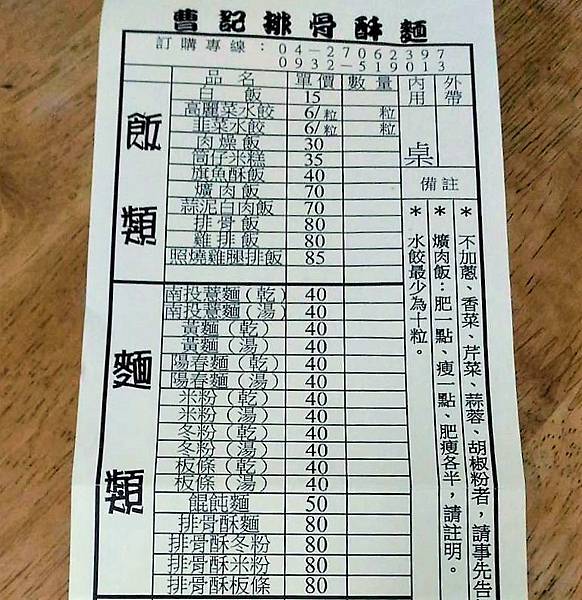 曹記排骨酥麵
訂購專線：04-27062397
0932-519013
品名 單價 數量 內用 外帶
飯類
白飯 15
高麗菜水餃 6/粒 粒
韭菜水餃 6/粒 粒
肉燥飯 30
筒仔米糕 35
旗魚酥飯 40
爌肉飯 70
蒜泥白肉飯 70
排骨飯 80
雞排飯 80
照燒雞腿排飯 85
桌
麵類
南投薏麵(乾) 40
南投薏麵(湯) 40
黃麵(乾) 40
黃麵(湯) 40
陽春麵(乾) 40
陽春麵(湯) 40
米粉(乾) 40
米粉(湯) 40
冬粉(乾) 40
冬粉(湯) 40
板條(乾) 40
板條(湯) 40
餛飩麵 50
排骨酥麵 80
排骨酥冬粉 80
排骨酥米粉 80
排骨酥板條 80
備註
*不加蔥、香菜、芹菜、蒜蓉、胡椒粉者，請事先告
*爌肉飯：肥一點、瘦一點、肥瘦各半，請註明。
*水餃最少為十粒。